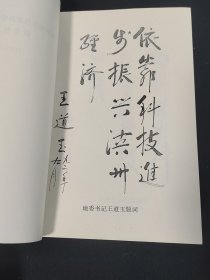 依靠科技進
步振兴滨州
經济
王道玉
地委书记王道玉题词